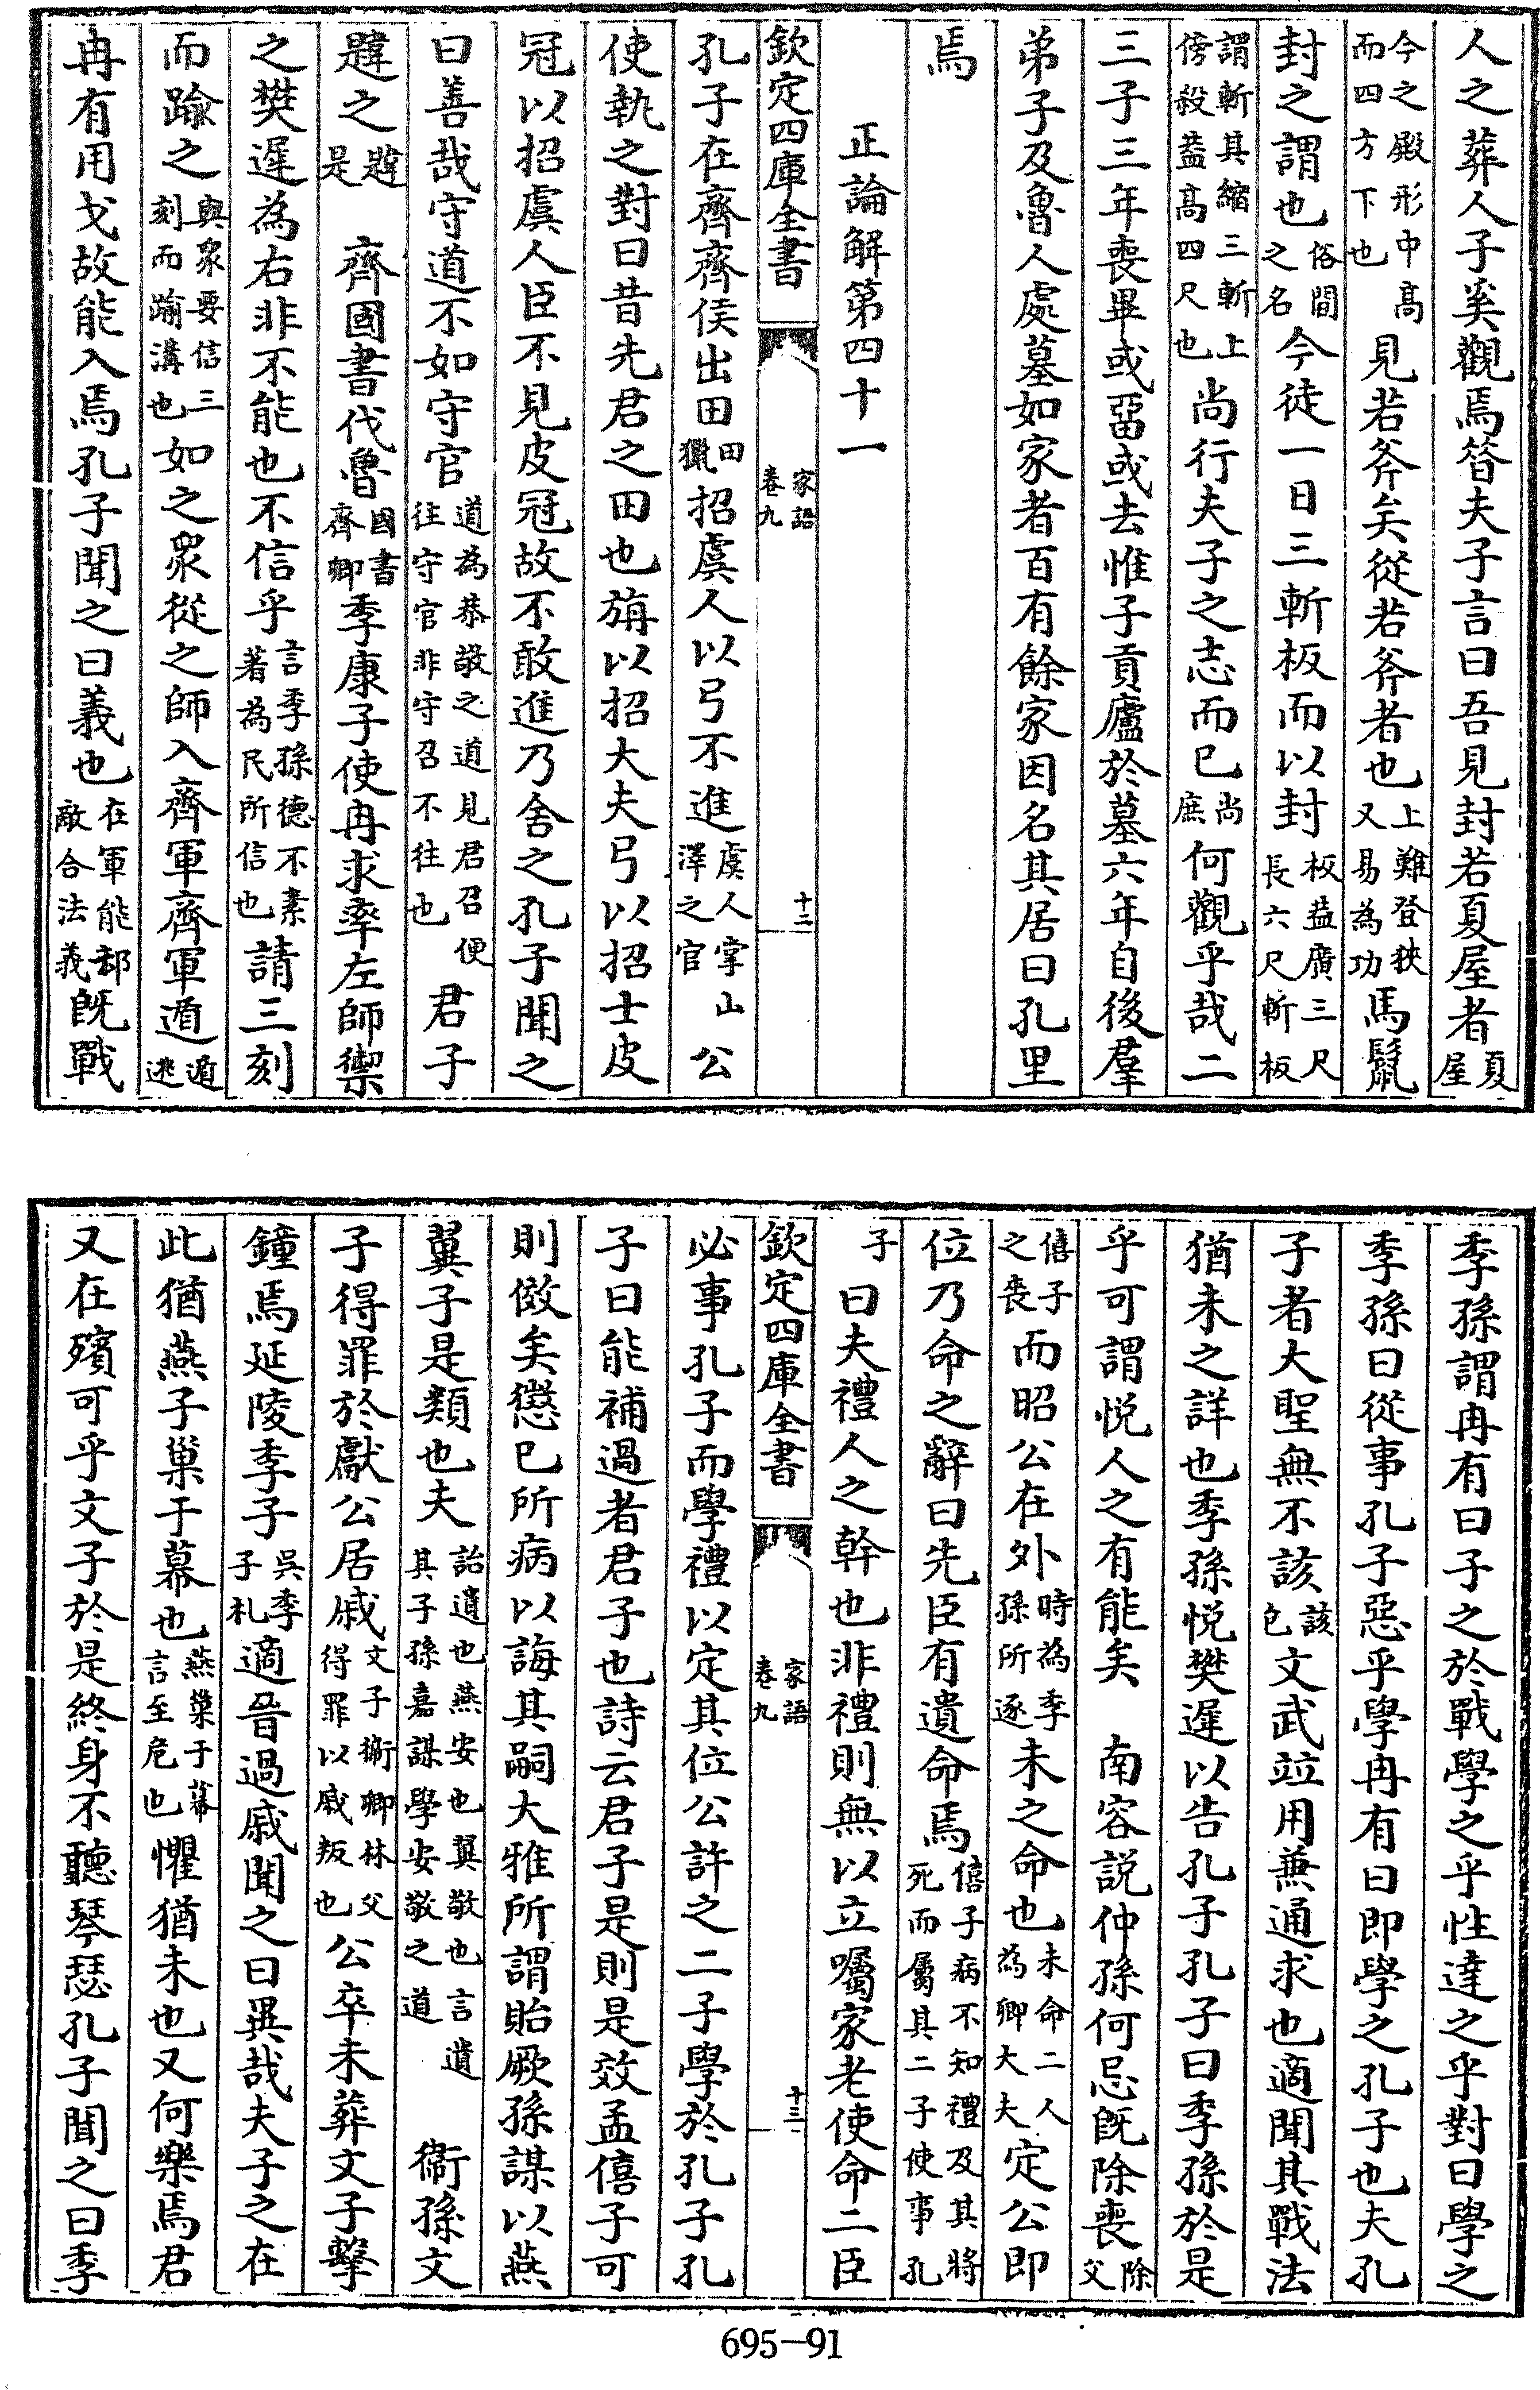 人之葬人子奚觀焉昝夫子言曰吾見封若夏屋者夏屋
今之殿形中髙而四方下也見若斧矣從若斧者也上難登狹又易為功馬鬛
封之謂也俗間之名今徒一日三斬板而以封板葢廣三尺長六尺斬板
謂斬其縮三斬上傍殺葢髙四尺也尚行夫子之志而已尚庶何觀乎哉二
三子三年喪畢或畱或去惟子貢廬於墓六年自後羣
弟子及魯人處墓如家者百有餘家因名其居曰孔里
焉
正論解第四十一
欽定四庫全書 家語卷九 十二
孔子在齊齊侯出田田獵招虞人以弓不進虞人掌山澤之官公
使執之對曰昔先君之田也旃以招大夫弓以招士皮
冠以招虞人臣不見皮冠故不敢進乃舍之孔子聞之
曰善哉守道不如守官道為恭敬之道見君召便往守官非守召不往也君子
韙之韙是 齊國書伐魯國書齊卿季康子使冉求率左師禦
之樊遲為右非不能也不信乎言季孫德不素著為民所信也請三刻
而踰之與衆要信三刻而踰溝也如之衆從之師入齊軍齊軍遁遁逃
冉有用戈故能入焉孔子聞之曰義也在軍能却敵合法義既戰
季孫謂冉有曰子之於戰學之乎性達之乎對曰學之
季孫曰從事孔子惡乎學冉有曰即學之孔子也夫孔
子者大聖無不該該包文武竝用兼通求也適聞其戰法
猶未之詳也季孫悦樊遲以告孔子孔子曰季孫於是
乎可謂悦人之有能矣 南容說仲孫何忌既除喪除父
僖子之喪而昭公在外時為季孫所逐未之命也未命二人為卿大夫定公即
位乃命之辭曰先臣有遺命焉僖子病不知禮及其將死而屬其二子使事孔
子曰夫禮人之幹也非禮則無以立囑家老使命二臣
欽定四庫全書 家語卷九 十三
必事孔子而學禮以定其位公許之二子學於孔子孔
子曰能補過者君子也詩云君子是則是效孟僖子可
則傚矣懲已所病以誨其嗣大雅所謂貽厥孫謀以燕
翼子是類也夫詒遺也燕安也翼敬也言遺其子孫嘉謀學安敬之道 衞孫文
子得罪於獻公居戚文子衞卿林父得罪以戚叛也公卒未葬文子擊
鐘焉延陵季子吳季子札適晉過戚聞之曰異哉夫子之在
此猶燕子巢于幕也燕巢于幕言至危也懼猶未也又何樂焉君
又在殯可乎文子於是終身不聽琴瑟孔子聞之曰季
695-91